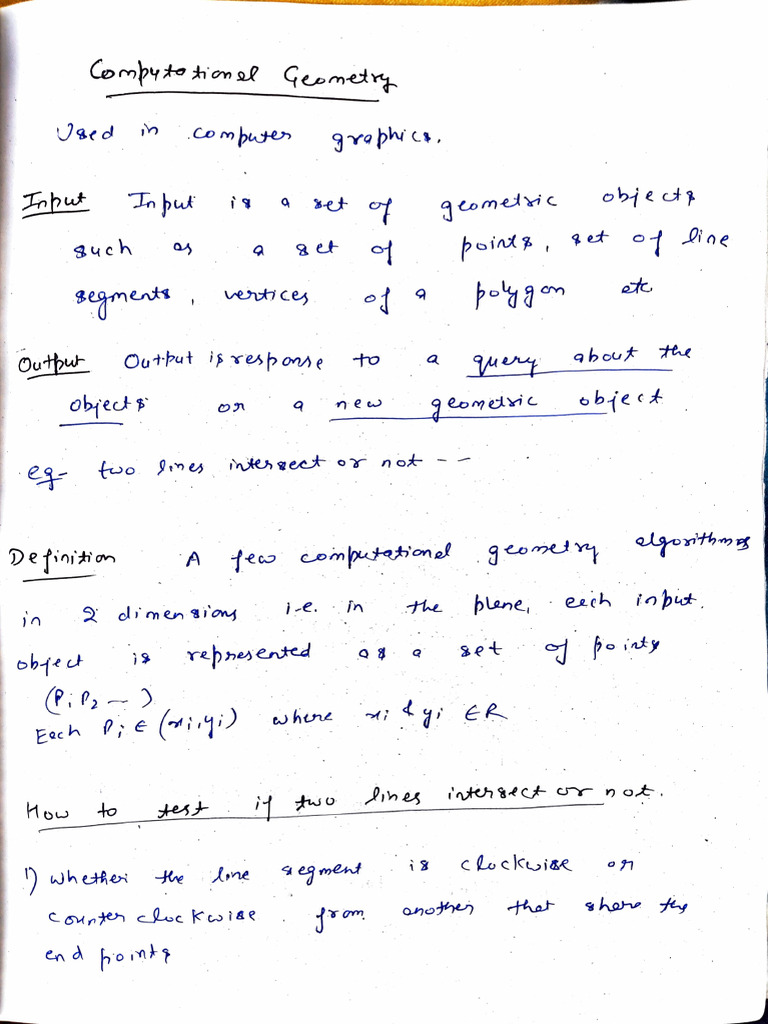 Computational Geometry
Used in computer graphics.
Input Input is a set of geometric objects
such as a set of points, set of line
segments, vertices of a polygon etc
Output Output is response to a query about the
objects or a new geometric object
eg- two lines intersect or not --
Definition A few computational geometry algorithms
in 2 dimensions i.e. in the plane, each input.
object is represented as a set of points
(P1 P2 --- )
Each Pi ∈ (xi, yi) where xi & yi ∈ R
How to test if two lines intersect or not.
1) whether the line segment is clockwise or
counter clockwise from another that share the
end points